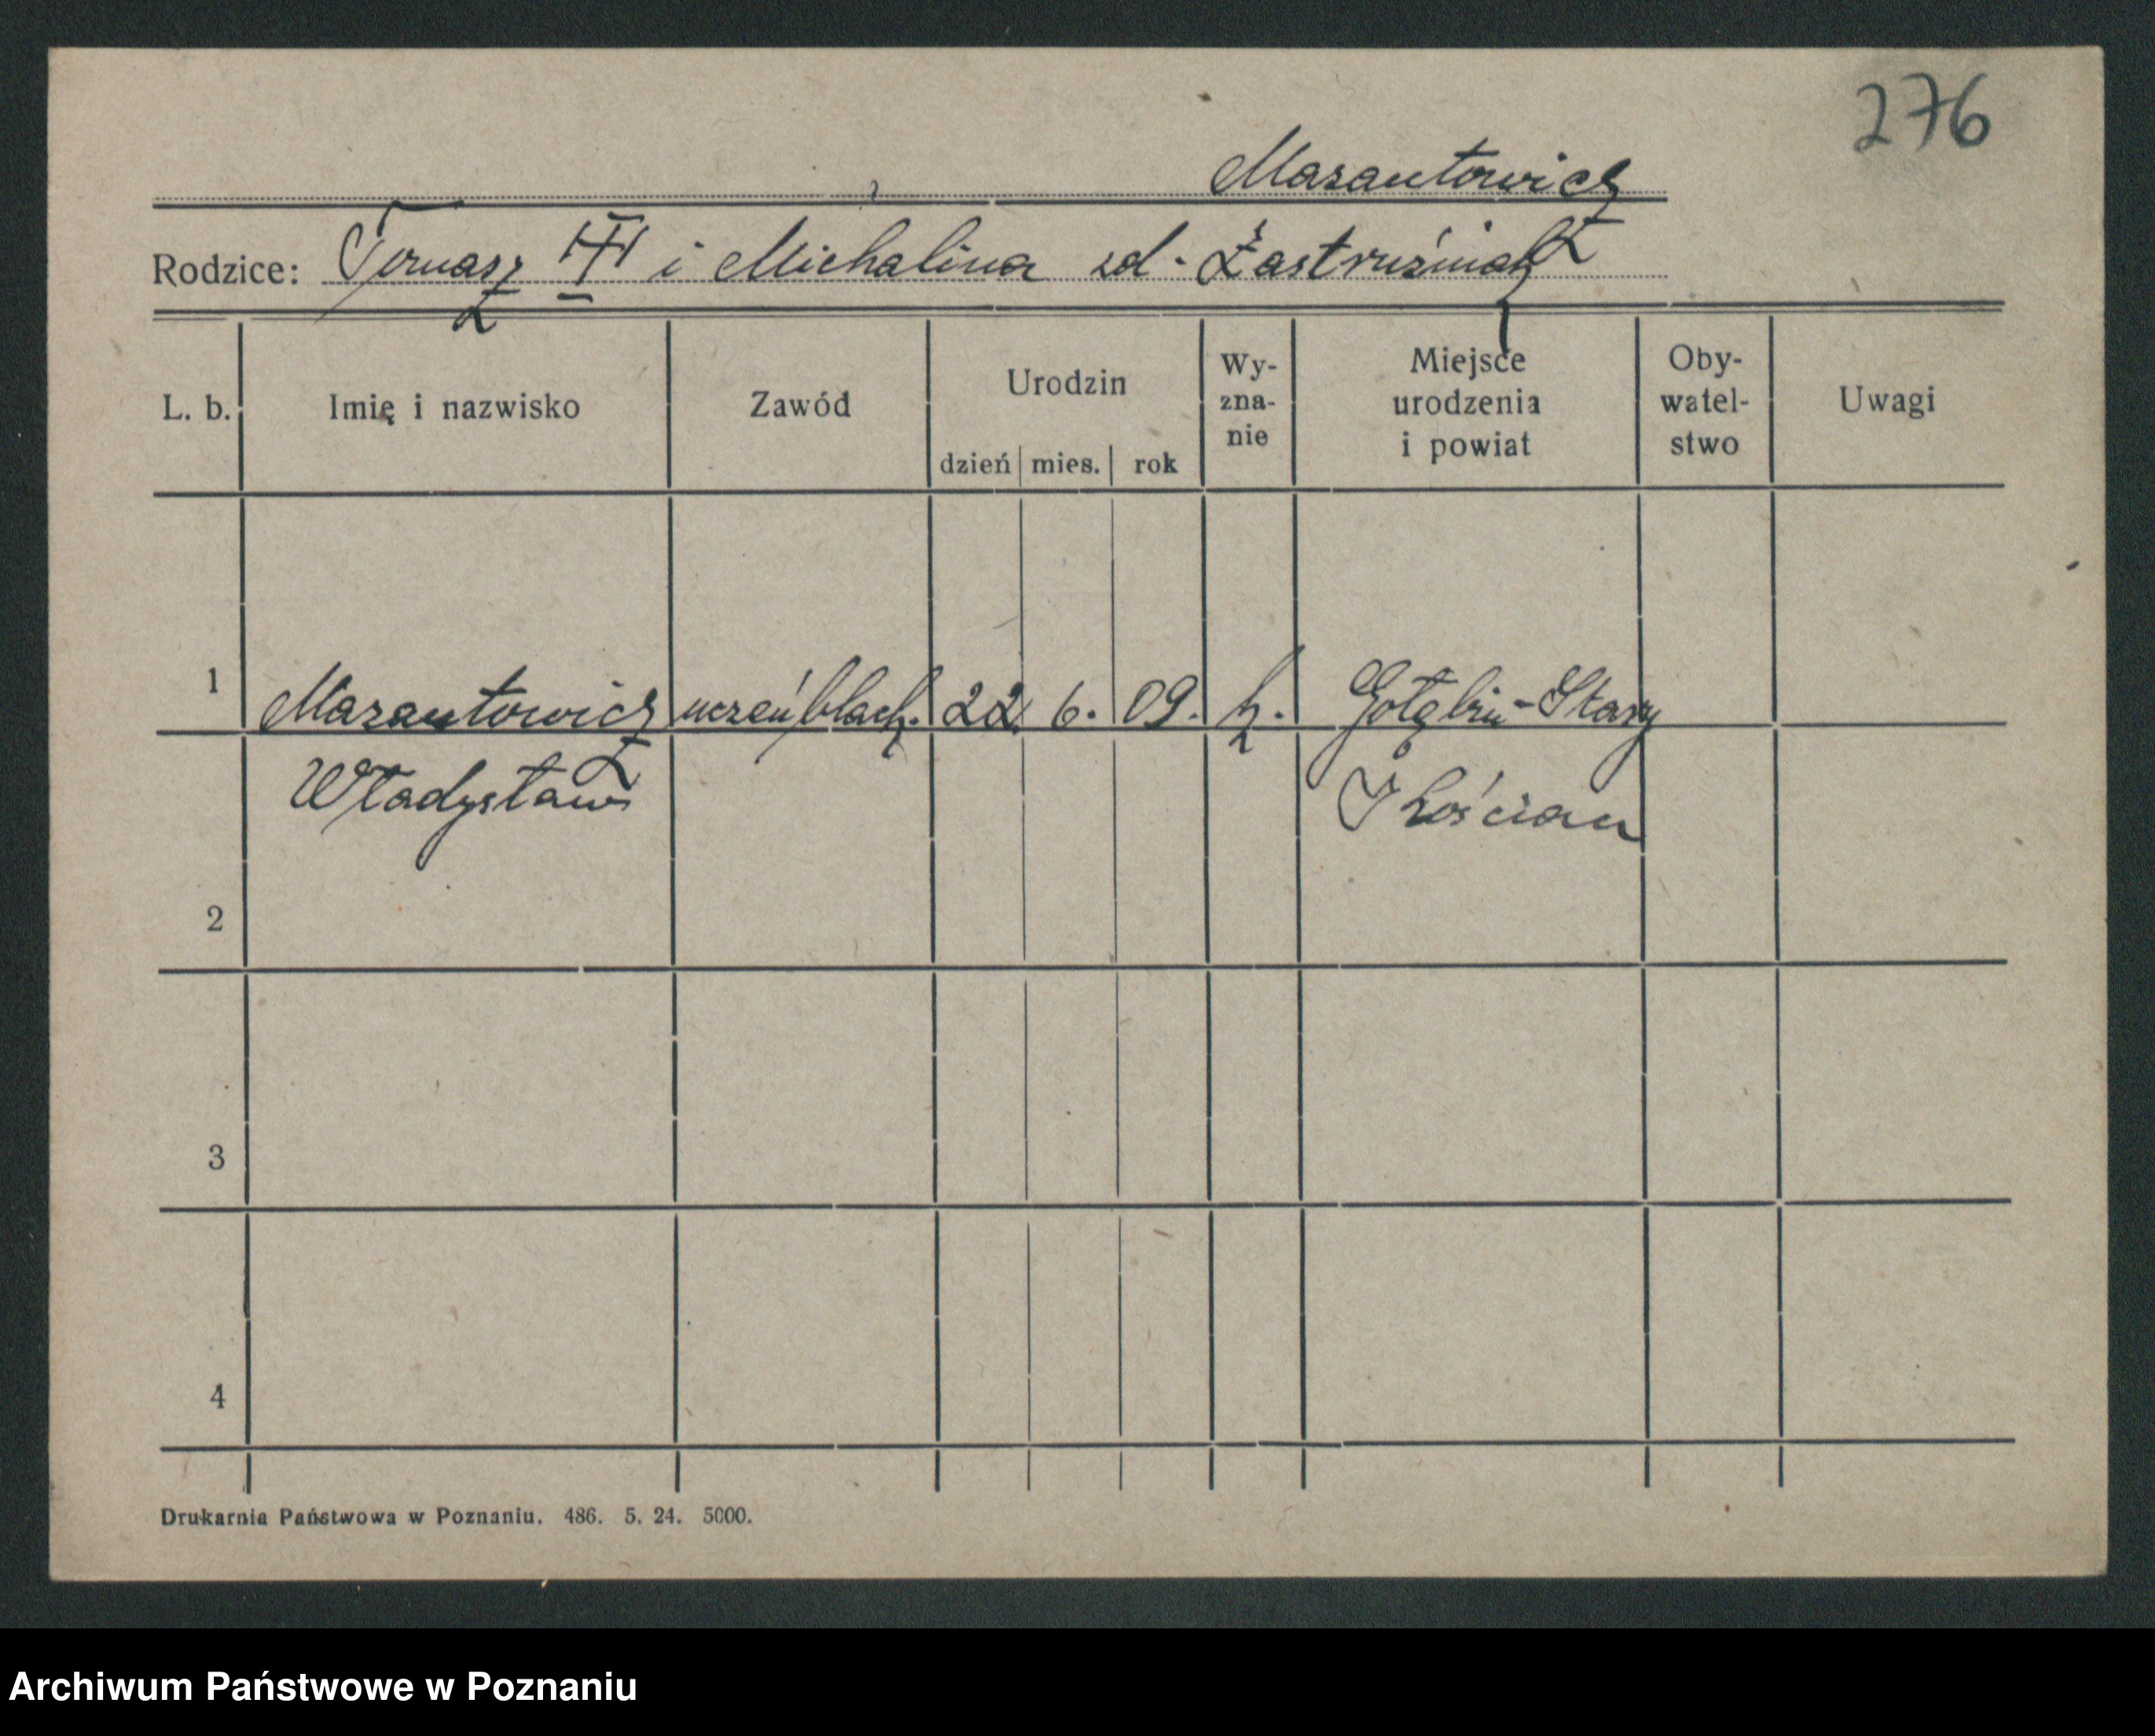 276
Mazantowicz
Rodzice: Tomasz III i Michalina zd. Zastrużniak
L. b. Imię i nazwisko Zawód Urodzin dzień mies. rok Wy-zna-nie Miejsce urodzenia i powiat Oby-watel-stwo Uwagi
1 Mazantowicz uczeń blach. 22 6. 09. k. Gołębin-Stary
Władysław Kościan
2
3
4
Drukarnia Państwowa w Poznaniu. 486. 5. 24. 5000.
Archiwum Państwowe w Poznaniu